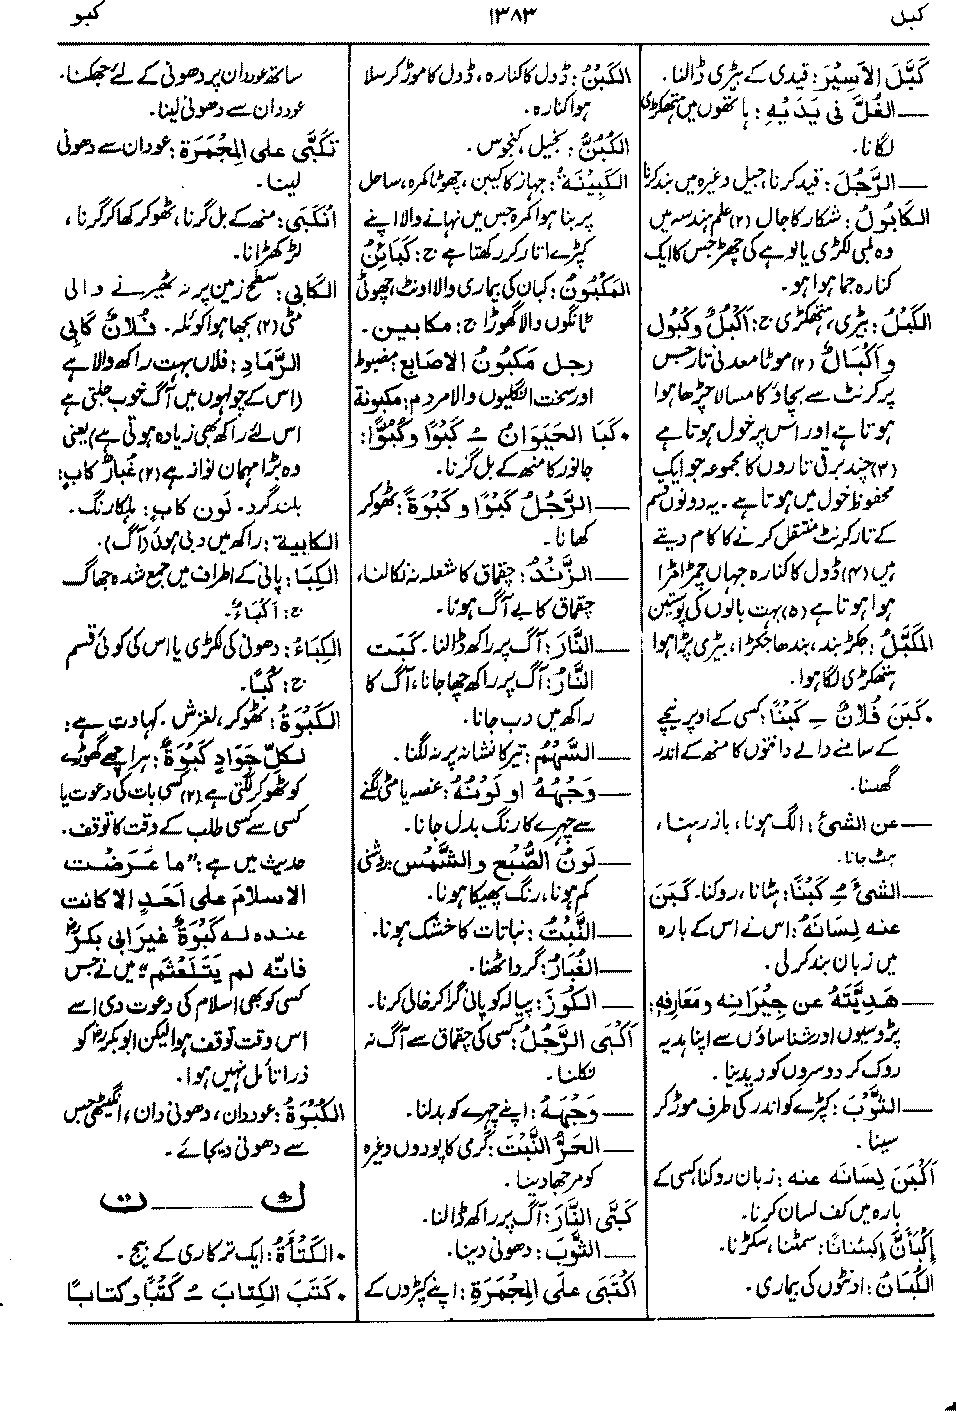 کبل
۱۳۸۳
کبو
کَبَّلَ الاَسِیْرَ: قیدی کے بیڑی ڈالنا۔
— الغُلَّ فی یَدَیْهِ: ہاتھوں میں ہتھکڑی
لگانا۔
— الرَّجُلَ: قید کرنا، جیل وغیرہ میں بند کرنا
الکَابُوْلُ: شکار کا جال (۲) علم ہندسہ میں
وہ لمبی لکڑی یا لوہے کی چھڑ جس کا ایک
کنارہ جما ہوا ہو۔
الکَبْلُ: بیڑی، ہتھکڑی ج: اَکْبُلٌ و کُبُول
و اَکْبَالٌ (۲) موٹا معدنی تار جس
پر کرنٹ سے بچاؤ کا مسالا چڑھا ہوا
ہوتا ہے اور اس پر خول ہوتا ہے
(۳) چند برقی تاروں کا مجموعہ جو ایک
محفوظ خول میں ہوتا ہے۔ یہ دونوں قسم
کے تار کرنٹ منتقل کرنے کا کام دیتے
ہیں (۴) ڈول کا کنارہ جہاں چمڑا مڑا
ہوا ہوتا ہے (۵) بہت بالوں کی پوستین
المُکَبَّلُ: جکڑ بند، بندھا جکڑا، بیڑی پڑا ہوا
ہتھکڑی لگا ہوا۔
• کَبَنَ فُلَانٌ ـِ کَبْنًا: کسی کے اوپر نیچے
کے سامنے والے دانتوں کا منھ کے اندر
گھسنا۔
— عن الشئ: الگ ہونا، باز رہنا،
ہٹ جانا۔
— الشئَ ـُ کَبْنًا: ہٹانا، روکنا۔ کَبَنَ
عنه لِسَانَهُ: اس نے اس کے بارہ
میں زبان بند کر لی۔
— هَدِیَّتَهُ عن جِیْرَانِه و مَعَارِفِه:
پڑوسیوں اور شناساؤں سے اپنا ہدیہ
روک کر دوسروں کو دیدینا۔
— الثَّوْبَ: کپڑے کو اندر کی طرف موڑ کر
سینا۔
اَکْبَنَ لِسَانَه عنه: زبان روکنا، کسی کے
بارہ میں کف لسان کرنا۔
اِکْبَأَنَّ اِکْبِئْنَانًا: سمٹنا، سکڑنا۔
الکُبَانُ: اونٹوں کی بیماری۔
الکَبْنُ: ڈول کا کنارہ، ڈول کا موڑ کر سلا
ہوا کنارہ۔
الکُبُنُّ: بخیل، کنجوس۔
الکَبِیْنَةُ: جہاز کا کیبن، چھوٹا کمرہ، ساحل
پر بنا ہوا کمرہ جس میں نہانے والا اپنے
کپڑے اتار کر رکھتا ہے ج: کَبَائِنُ
المَکْبُوْنُ: کبان کی بیماری والا اونٹ، چھوٹی
ٹانگوں والا گھوڑا ج: مکابین۔
رجل مَکْبُوْنُ الاصَابِعِ: مضبوط
اور سخت انگلیوں والا مرد م: مکبونة
• کَبَا الحَیَوَانُ ـُ کَبْوًا و کُبُوًّا:
جانور کا منھ کے بل گرنا۔
— الرَّجُلُ کَبْوًا و کَبْوَةً: ٹھوکر
کھانا۔
— الزَّنْدُ: چقماق کا شعلہ نہ نکالنا،
چقماق کا بے آگ ہونا۔
— النَّارَ: آگ پر راکھ ڈالنا۔ کَبَت
النَّارُ: آگ پر راکھ چھا جانا، آگ کا
راکھ میں دب جانا۔
— السَّهْمُ: تیر کا نشانہ پر نہ لگنا۔
— وَجْهُهُ او لَوْنُهُ: غصہ یا مٹی لگنے
سے چہرے کا رنگ بدل جانا۔
— لَوْنُ الصُّبْحِ والشَّمْسِ: روشنی
کم ہونا، رنگ پھیکا ہونا۔
— النَّبْتُ: نباتات کا خشک ہونا۔
— الغُبَارُ: گرد اٹھنا۔
— الکُوْزَ: پیالہ کو پانی گرا کر خالی کرنا۔
اَکْبَی الرَّجُلُ: کسی کی چقماق سے آگ نہ
نکلنا۔
— وَجْهَهُ: اپنے چہرے کو بدلنا۔
— الحَرُّ النَّبْتَ: گرمی کا پودوں وغیرہ
کو مرجھا دینا۔
کَبَّی النَّارَ: آگ پر راکھ ڈالنا۔
— الثَّوْبَ: دھونی دینا۔
اکْتَبَی علی المِجْمَرَةِ: اپنے کپڑوں کے
ساتھ عوددان پر دھونی کے لئے جھکنا۔
عوددان سے دھونی لینا۔
تَکَبَّی علی المِجْمَرَةِ: عوددان سے دھونی
لینا۔
انْکَبَی: منھ کے بل گرنا، ٹھوکر کھا کر گرنا،
لڑکھڑانا۔
الکَابِی: سطح زمین پر نہ ٹھیرنے والی
مٹی (۲) بجھا ہوا کوئلہ۔ فُلَانٌ کَابِی
الرَّمَادِ: فلاں بہت راکھ والا ہے
(اس کے چولہوں میں آگ خوب جلتی ہے
اس لئے راکھ بھی زیادہ ہوتی ہے) یعنی
وہ بڑا مہمان نواز ہے (۳) غُبَارٌ کابٍ:
بلند گرد۔ لَون کابٍ: ہلکا رنگ۔
الکابیة: راکھ میں دبی ہوئی (آگ)۔
الکِبَا: پانی کے اطراف میں جمع شدہ جھاگ
ج: اَکْبَاءٌ۔
الکِبَاءُ: دھونی کی لکڑی یا اس کی کوئی قسم
ج: کُبًا۔
الکَبْوَةُ: ٹھوکر، لغزش۔ کہاوت ہے:
لکلِّ جَوَادٍ کَبْوَةٌ: ہر اچھے گھوڑے
کو ٹھوکر لگتی ہے (۲) کسی بات کی دعوت یا
کسی سے کسی طلب کے وقت کا توقف۔
حدیث میں ہے: "ما عَرَضْت
الاسلامَ علی اَحَدٍ الا کانت
عندہ له کَبْوَةٌ غیرَ ابی بکرٍؓ
فانّه لم یَتَلَعْثَم" میں نے جس
کسی کو بھی اسلام کی دعوت دی اسے
اس وقت توقف ہوا لیکن ابوبکرؓ کو
ذرا تأمل نہیں ہوا۔
الکُبْوَةُ: عوددان، دھونی دان، انگیٹھی جس
سے دھونی دیجائے۔
ك — ت
• الکَتْأَةُ: ایک ترکاری کے بیج۔
• کَتَبَ الکِتابَ ـُ کَتْبًا و کتابًا